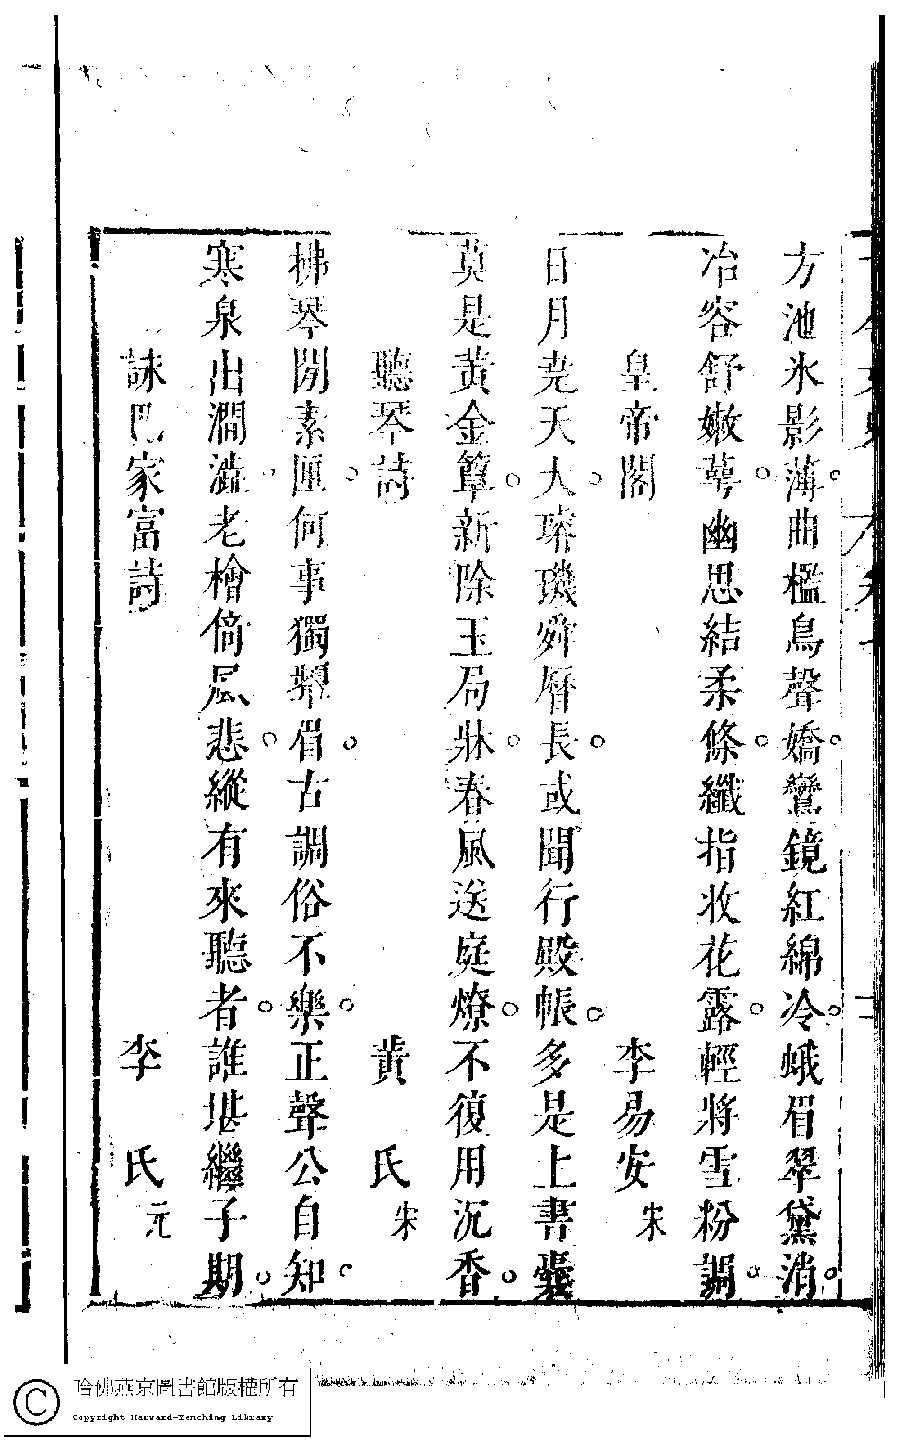 方池氷影薄。曲檻鳥聲嬌。鸞鏡紅綿冷。蛾眉翠黛消。
冶容舒嫩萼。幽思結柔條。纖指收花露。輕將雪粉調。
皇帝閣 李易安 宋
日月堯天大。璿璣舜曆長。或聞行殿帳。多是上書囊
莫是黃金簟。新除玉局牀。春風送庭燎。不復用沉香。
聽琴詩 黃氏 宋
拂琴開素匣。何事獨顰眉。古調俗不樂。正聲公自知。
寒泉出澗澁。老檜倚風悲。縱有來聽者。誰堪繼子期。
誄巴家富詩 李氏 元
哈佛燕京圖書館版權所有
Copyright Harvard-Yenching Library